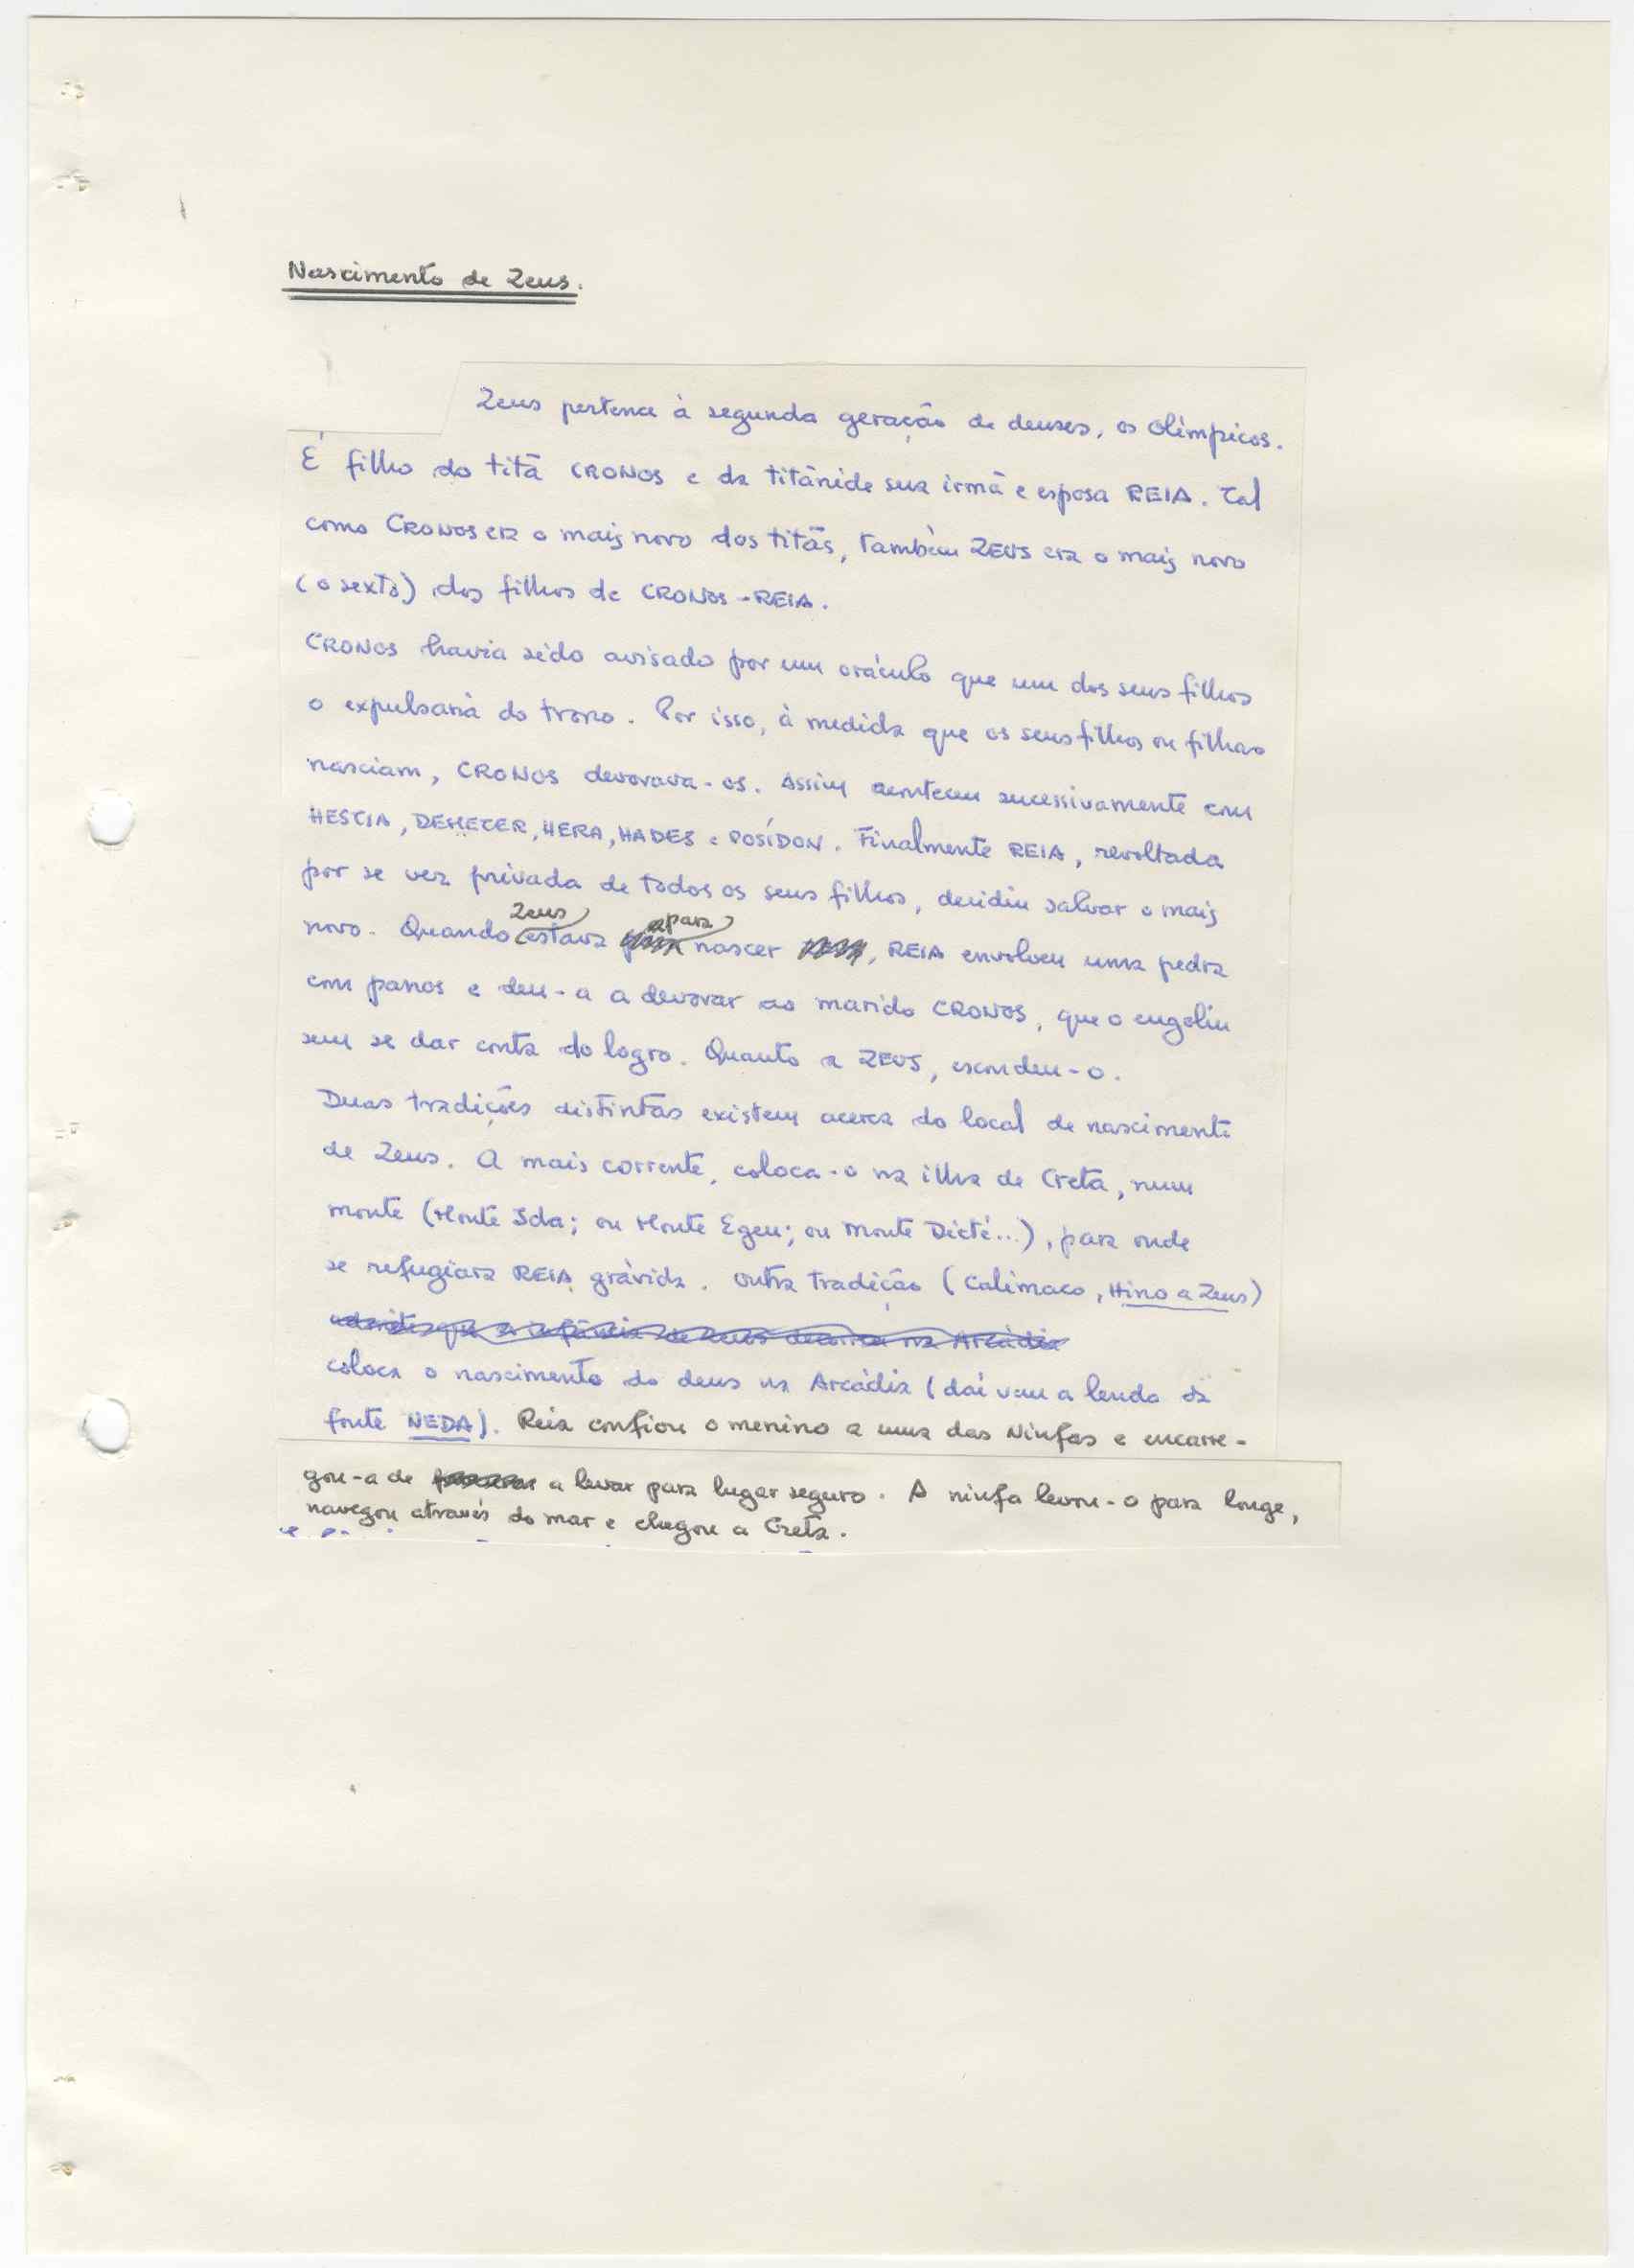 Nascimento de Zeus.
Zeus pertence à segunda geração de deuses, os Olímpicos.
É filho do titã CRONOS e da titânide sua irmã e esposa REIA. Tal
como CRONOS era o mais novo dos titãs, também ZEUS era o mais novo
(o sexto) dos filhos de CRONOS-REIA.
CRONOS havia sido avisado por um oráculo que um dos seus filhos
o expulsaria do trono. Por isso, à medida que os seus filhos ou filhas
nasciam, CRONOS devorava-os. Assim aconteceu sucessivamente com
HESTIA, DEMETER, HERA, HADES e POSÍDON. Finalmente REIA, revoltada
por se ver privada de todos os seus filhos, decidiu salvar o mais
novo. Quando Zeus estava para nascer, REIA envolveu uma pedra
com panos e deu-a a devorar ao marido CRONOS, que o engoliu
sem se dar conta do logro. Quanto a ZEUS, escondeu-o.
Duas tradições distintas existem acerca do local de nascimento
de Zeus. A mais corrente, coloca-o na ilha de Creta, num
monte (Monte Ida; ou Monte Egeu; ou Monte Dicté...), para onde
se refugiara REIA grávida. Outra tradição (Calímaco, Hino a Zeus)
coloca o nascimento do deus na Arcádia (daí vem a lenda da
fonte NEDA). Reia confiou o menino a uma das Ninfas e encarre-
gou-a de a levar para lugar seguro. A ninfa levou-o para longe,
navegou através do mar e chegou a Creta.